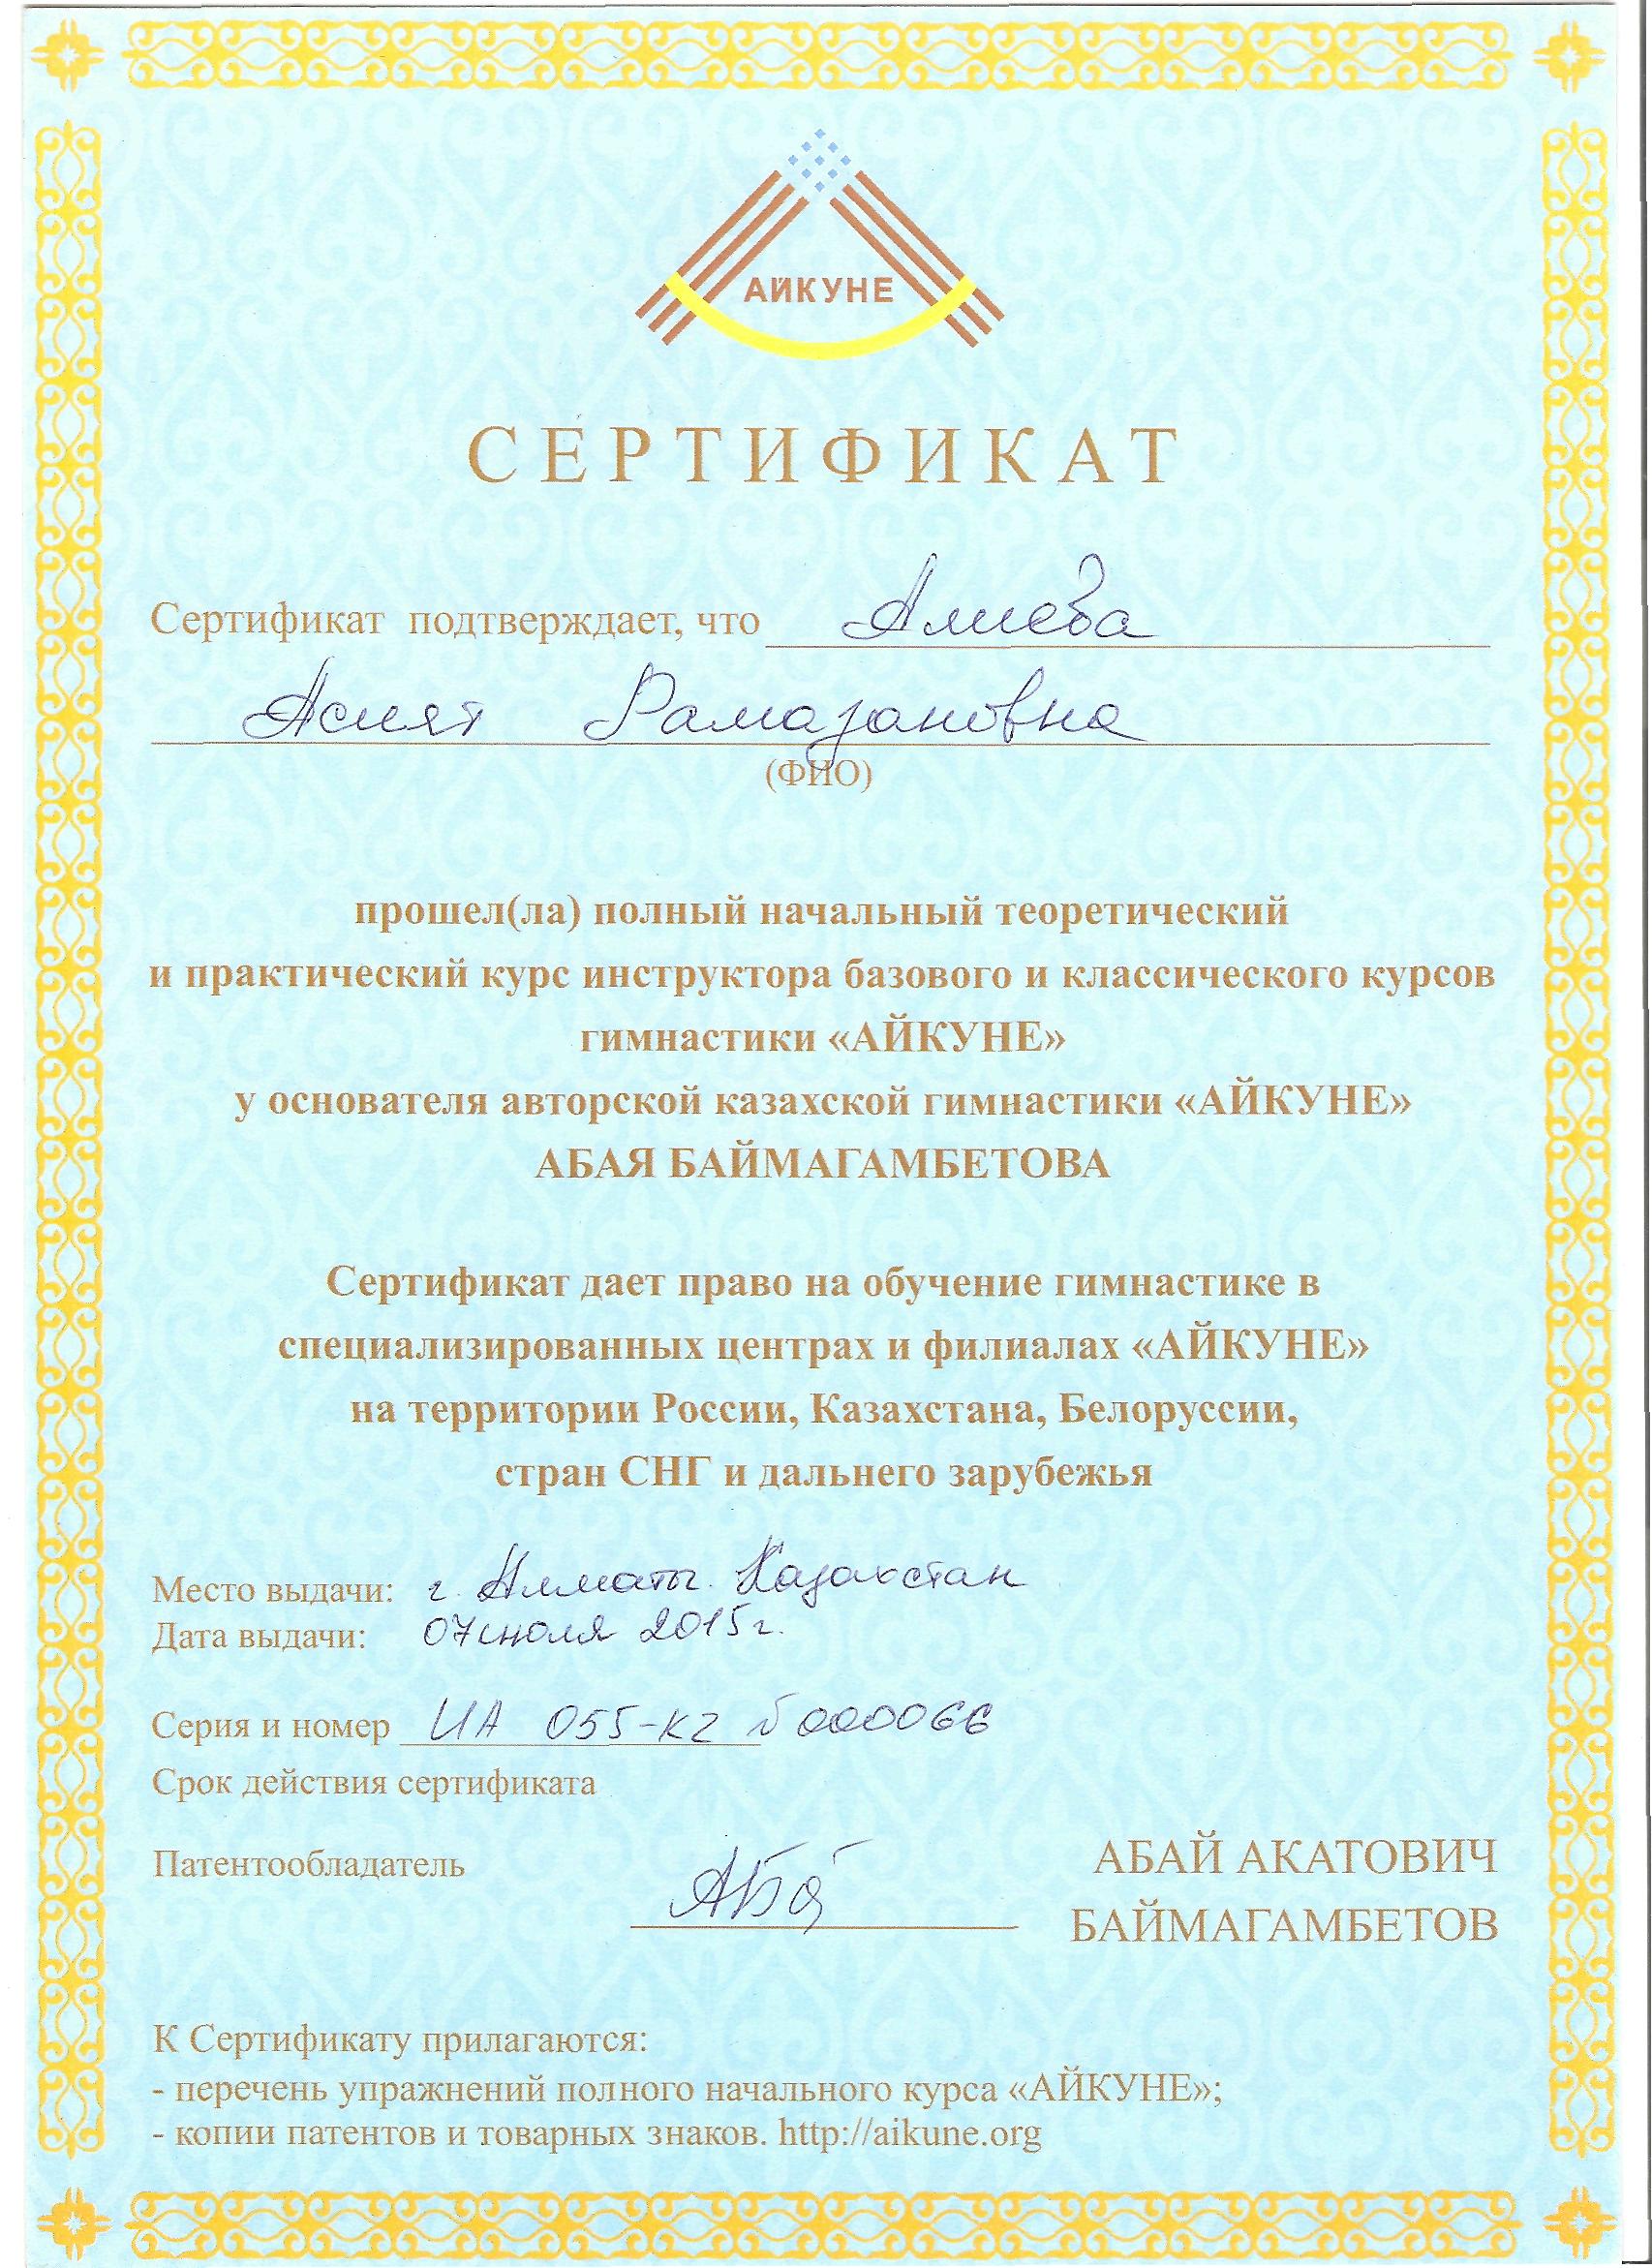 АЙКУНЕ
СЕРТИФИКАТ
Сертификат подтверждает, что Алиева
Асият Рамазановна
(ФИО)
прошел(ла) полный начальный теоретический
и практический курс инструктора базового и классического курсов
гимнастики «АЙКУНЕ»
у основателя авторской казахской гимнастики «АЙКУНЕ»
АБАЯ БАЙМАГАМБЕТОВА
Сертификат дает право на обучение гимнастике в
специализированных центрах и филиалах «АЙКУНЕ»
на территории России, Казахстана, Белоруссии,
стран СНГ и дальнего зарубежья
Место выдачи: г. Алматы. Казахстан
Дата выдачи: 07 июля 2015г.
Серия и номер ИА 055-К2 № 000066
Срок действия сертификата
Патентообладатель
АБАЙ АКАТОВИЧ
БАЙМАГАМБЕТОВ
К Сертификату прилагаются:
- перечень упражнений полного начального курса «АЙКУНЕ»;
- копии патентов и товарных знаков. http://aikune.org